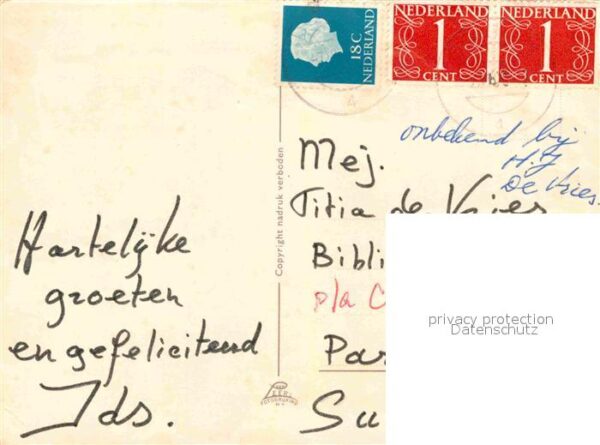 18 C
NEDERLAND
NEDERLAND
1
CENT
NEDERLAND
1
CENT
onbekend bij
H.J.
De Vries.
Mej.
Titia de Vries
Bibli
p/a C
Par
Su
Copyright nadruk verboden
Hartelijke
groeten
en gefeliciteerd
Ids.
privacy protection
Datenschutz